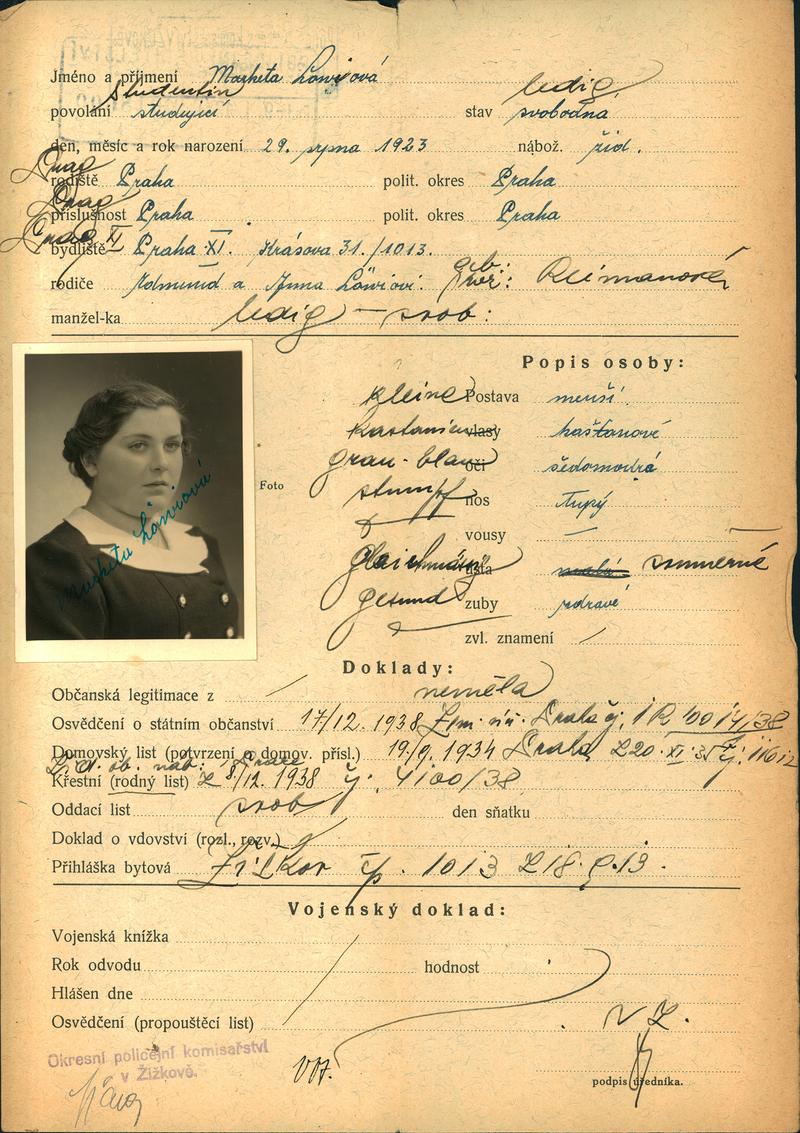 Jméno a příjmení Markéta Löwyová
Studentin ledig
povolání studující stav svobodna
den, měsíc a rok narození 29. srpna 1923 nábož. žid.
Prag
rodiště Praha polit. okres Praha
Prag
příslušnost Praha polit. okres Praha
Prag XI
bydliště Praha XI. Krásova 31./1013.
geb:
rodiče Edmund a Anna Löwiovi. roz: Reimanová
manžel-ka ledig - svob:
Popis osoby:
kleine Postava menší.
kastanien vlasy kaštanové
grau-blau oči šedomodrá
Foto
stumpf nos tupý
vousy —
gleichmässig ústa malá souměrné
gesund zuby zdravé
zvl. znamení /
Markéta Löwiová
Doklady:
Občanská legitimace z neměla
Osvědčení o státním občanství 17/12. 1938 Praha čj.
Domovský list (potvrzení o domov. přísl.) 19./9. 1934 Praha
Ž. ob. náb. Praze
Křestní (rodný list) Z 8/12. 1938 čj. 4100/38
Oddací list svob den sňatku
Doklad o vdovství (rozl., rozv.)
Přihláška bytová Žižkov čp. 1013
Vojenský doklad:
Vojenská knížka
Rok odvodu hodnost
Hlášen dne
Osvědčení (propouštěcí list)
Okresní policejní komisařství
v Žižkově.
podpis úředníka.